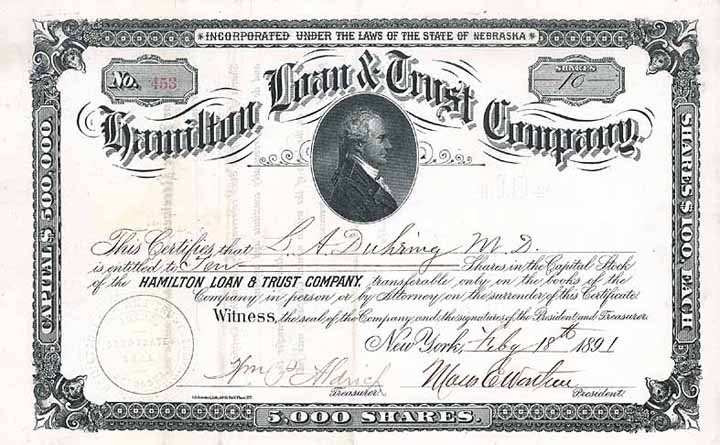 INCORPORATED UNDER THE LAWS OF THE STATE OF NEBRASKA
No. 453
SHARES
10
Hamilton Loan & Trust Company.
CAPITAL $500,000
SHARES $100. EACH
This Certifies that L. A. Duhring M.D.
is entitled to Ten Shares in the Capital Stock
of the HAMILTON LOAN & TRUST COMPANY. transferable only on the books of the
Company in person or by Attorney on the surrender of this Certificate
Witness, the seal of the Company and the signatures of the President and Treasurer.
New York, Feby 18th 1891
Wm P. Aldrich
Treasurer.
President.
5,000 SHARES.